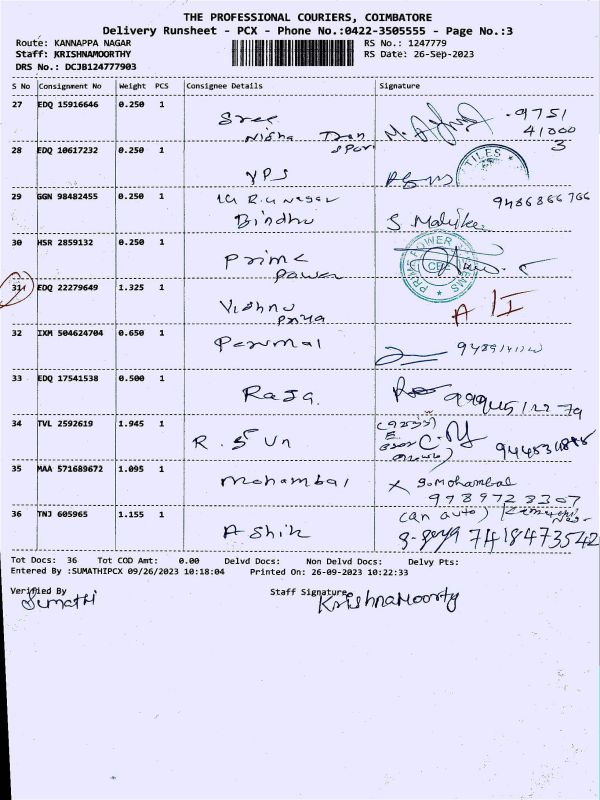 THE PROFESSIONAL COURIERS, COIMBATORE
Delivery Runsheet - PCX - Phone No.:0422-3505555 - Page No.:3
Route: KANNAPPA NAGAR RS No.: 1247779
Staff: KRISHNAMOORTHY RS Date: 26-Sep-2023
DRS No.: DCJB124777903
S No Consignment No Weight PCS Consignee Details Signature
27 EDQ 15916646 0.250 1
Sree 9751
Nisha Tran 41000
spor 3
28 EDQ 10617232 0.250 1
VPS TILES
29 GGN 98482455 0.250 1
9486866766
Bindhu S
30 HSR 2859132 0.250 1
Prime PRIME POWER SYSTEMS
Power CBE
331 EDQ 22279649 1.325 1
Vishnu A/I
Priya
32 IXM 504624704 0.650 1
Perumal
33 EDQ 17541538 0.500 1
Raja
34 TVL 2592619 1.945 1
R. Sun
35 MAA 571689672 1.095 1
Mohambal S. Mohambal
9789723307
36 TNJ 605965 1.155 1
(an auto)
Ashik 7418473542
Tot Docs: 36 Tot COD Amt: 0.00 Delvd Docs: Non Delvd Docs: Delvy Pts:
Entered By :SUMATHIPCX 09/26/2023 10:18:04 Printed On: 26-09-2023 10:22:33
Verified By Staff Signature
Sumathi KrishnaMoorty